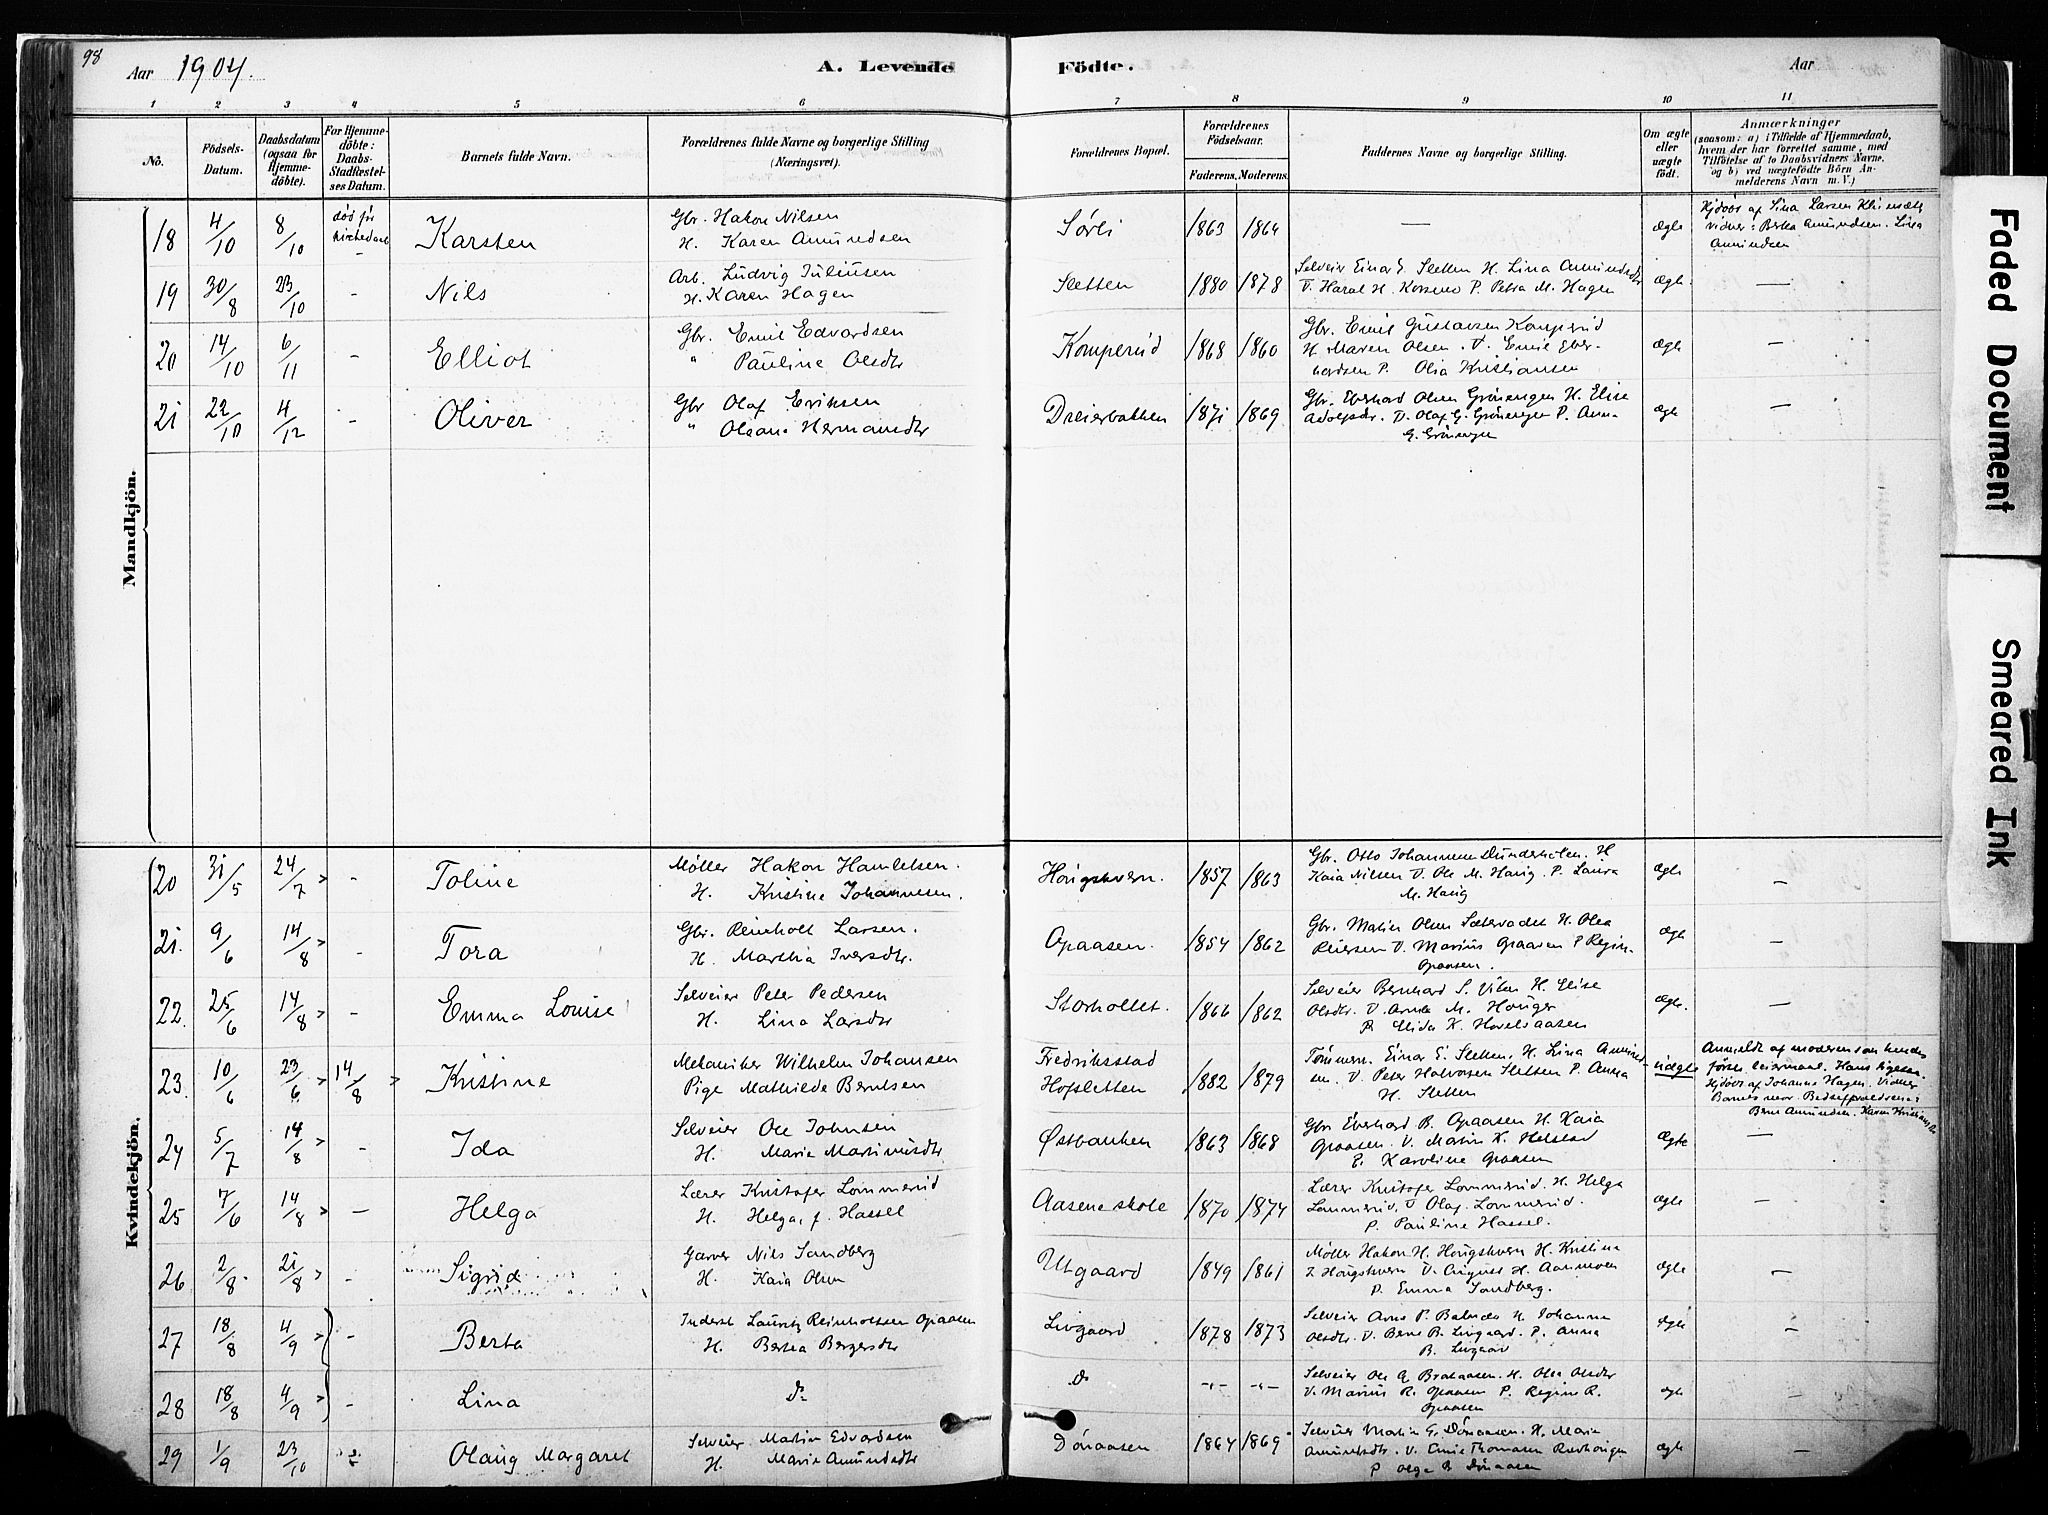 98
Aar 1904.
A. Levende Födte.
Aar
1 2 3 4 5 6 7 8 9 10 11
No.
Födsels-Datum.
Daabsdatum (ogsaa for Hjemme-döbte).
For Hjemme-döbte: Daabs-Stadfæstel-ses Datum.
Barnets fulde Navn.
Forældrenes fulde Navne og borgerlige Stilling (Næringsvei).
Forældrenes Bopæl.
Forældrenes Födselsaar.
Faderens. Moderens.
Faddernes Navne og borgerlige Stilling.
Om ægte eller uægte födt.
Anmærkninger (saasom: a) i Tilfælde af Hjemmedaab, hvem der har forrettet samme, med Tilföielse af to Daabsvidners Navne, og b) ved uægtefödte Börn An-melderens Navn m. V.)
Mandkjön.
18 4/10 8/10 död før Karsten Gbr. Hakon Nilsen Sørli 1863 1864 — ægte Hjdöbt af Lina Larsen
H. Karen Amundsen vidner: Berta Amundsen. Lina Amundsen
19 30/8 23/10 - Nils Arb. Ludvig Juliusen Sletten 1880 1878 Selveier Einar E. Sletten H. Lina Amundsdtr ægte. —
H. Karen Hagen P. Petra M. Hagen
20 14/10 6/11 - Elliot Gbr. Emil Edvardsen Komperud 1868 1860 Gbr. Emil Gustavsen Komperud ægte —
" Pauline Olsdtr H. Maren Olsen. V. Emil
P. Olia Kristiansen
21 22/10 4/12 - Oliver Gbr Olaf Eriksen Dreierbakken 1871 1869 Gbr. Eberhard Olsen Grönengen H. Elise ægte —
" Oleane Hermansdtr V. Olaf G. Grönengen P. Anna
G. Grönengen
Kvindekjön.
20 31/5 24/7 - Toline Møller Hakon Hamletsen. Hougskvern. 1857 1863 Gbr. Otto Johannesen H ægte —
H. Kristine Johannesen. Kaia Nilsen V. Ole M. Haug. P. Laura
M. Haug
21. 9/6 14/8 - Tora Gbr. Reinholt Larsen. Opaasen. 1854 1862 Gbr. Martin Olsen Sætervadet H. Olea ægte —
H. Martha Iversdtr. Reiersen V. Marius Opaasen P Regine
Opaasen.
22. 25/6 14/8 - Emma Louise Selveier Peter Pedersen Storholtet. 1866 1862 Selveier Bernhard S. H. Elise ægte. —
H. Lina Larsdtr Olsdtr. V. M. Houger
P. Elida K. Hovelsaasen
23. 10/6 23/6 14/8 Kristine Mekaniker Wilhelm Johansen Fredriksstad 1882 1879 Tömmerm. Einar E. Sletten. H. Lina Amund- uægte Anmeldt af moderen som hendes
Pige Mathilde Berntsen Hofsletten sen. V. Peter Halvorsen Sletten P. Anna første leiermaal.
H. Sletten Hjdöbt af Johanne Hagen. Vidner
Barnets mor.
Bernt Amundsen. Karen
24 5/7 14/8 - Ida Selveier Ole Johnsen Østbanken 1863 1868 Gbr Eberhard R. Opaasen H. Kaia ægte —
H. Marie Martinusdtr Opaasen. V. Martin K. Helstad
P. Karoline Opaasen
25 7/6 14/8 — Helga Lærer Kristofer Lommerud Aasene skole 1870 1874 Lærer Kristofer Lommerud. H. Helga ægte —
H. Helga, f. Hassel Lommerud. V Olaf Lommerud.
P. Pauline Hassel.
26 2/8. 21/8 - Sigrid Garver Nils Sandberg Utgaard 1849 1861 Møller Hakon H. Hougskvern H. Kristina ægte —
H. Kaia Olsen J. Hougskvern V. August H. Aanmoen
P. Emma Sandberg.
27 18/8 4/9 - Berta Inderst Lauritz Reinholtsen Opaasen Livgaard 1878 1873 Selveier Arne P. H. Johanna ægte —
H. Berthea Bergersdtr Olsdtr. V. Bernt B. Livgaard. P. Anna
B. Livgaard
28 18/8 4/9 - Lina do do -"- -"- Selveier Ole H. Olea Olsdtr ægte —
V. Marius R. Opaasen P. Regine R.
Opaasen
29 1/9 23/10 Olaug Margaret Selveier Martin Edvardsen Dönaasen 1864 1869 Selveier Martin E. Dönaasen. H. Marie ægte —
H. Marie Amundsdtr Amundsdtr. V. Thomasen
P Olga Dönaasen
Faded Document
Smeared Ink